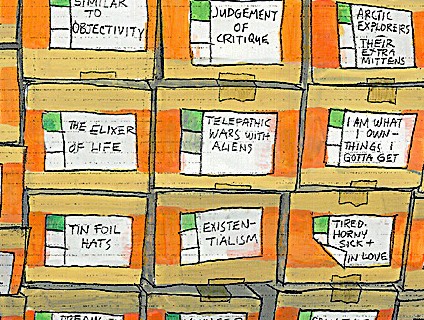 SIMILAR
TO
OBJECTIVITY
JUDGEMENT
OF
CRITIQUE
ARCTIC
EXPLORERS
THEIR
EXTRA
MITTENS
THE ELIXER
OF LIFE
TELEPATHIC
WARS WITH
ALIENS
I AM WHAT
I OWN-
THINGS I
GOTTA GET
TIN FOIL
HATS
EXISTEN-
TIALISM
TIRED.
HORNY
SICK +
IN LOVE